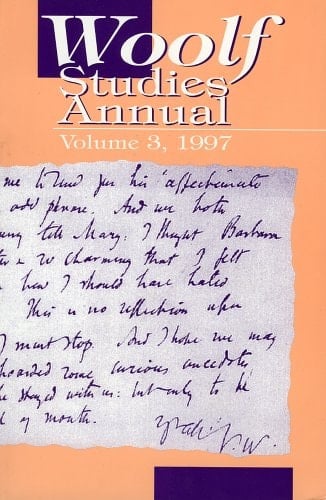 Woolf
Studies
Annual
Volume 3, 1997
me to find for his "affectionate
odd phrase. And we both
tell Mary: I thought Barbara
& so charming that I felt
how I should have hated
This is no reflection upon
I must stop. And I hope we may
hoarded some curious anecdotes
he stayed with us: but only to be
of month.
V.W.